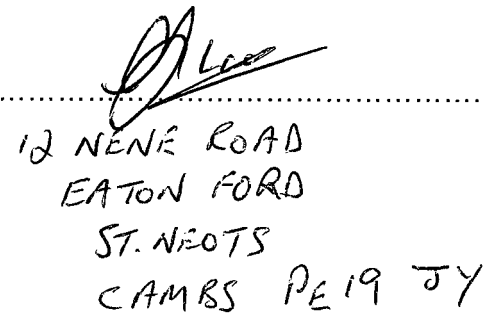 12 NENE ROAD
EATON FORD
ST. NEOTS
CAMBS PE19 JY